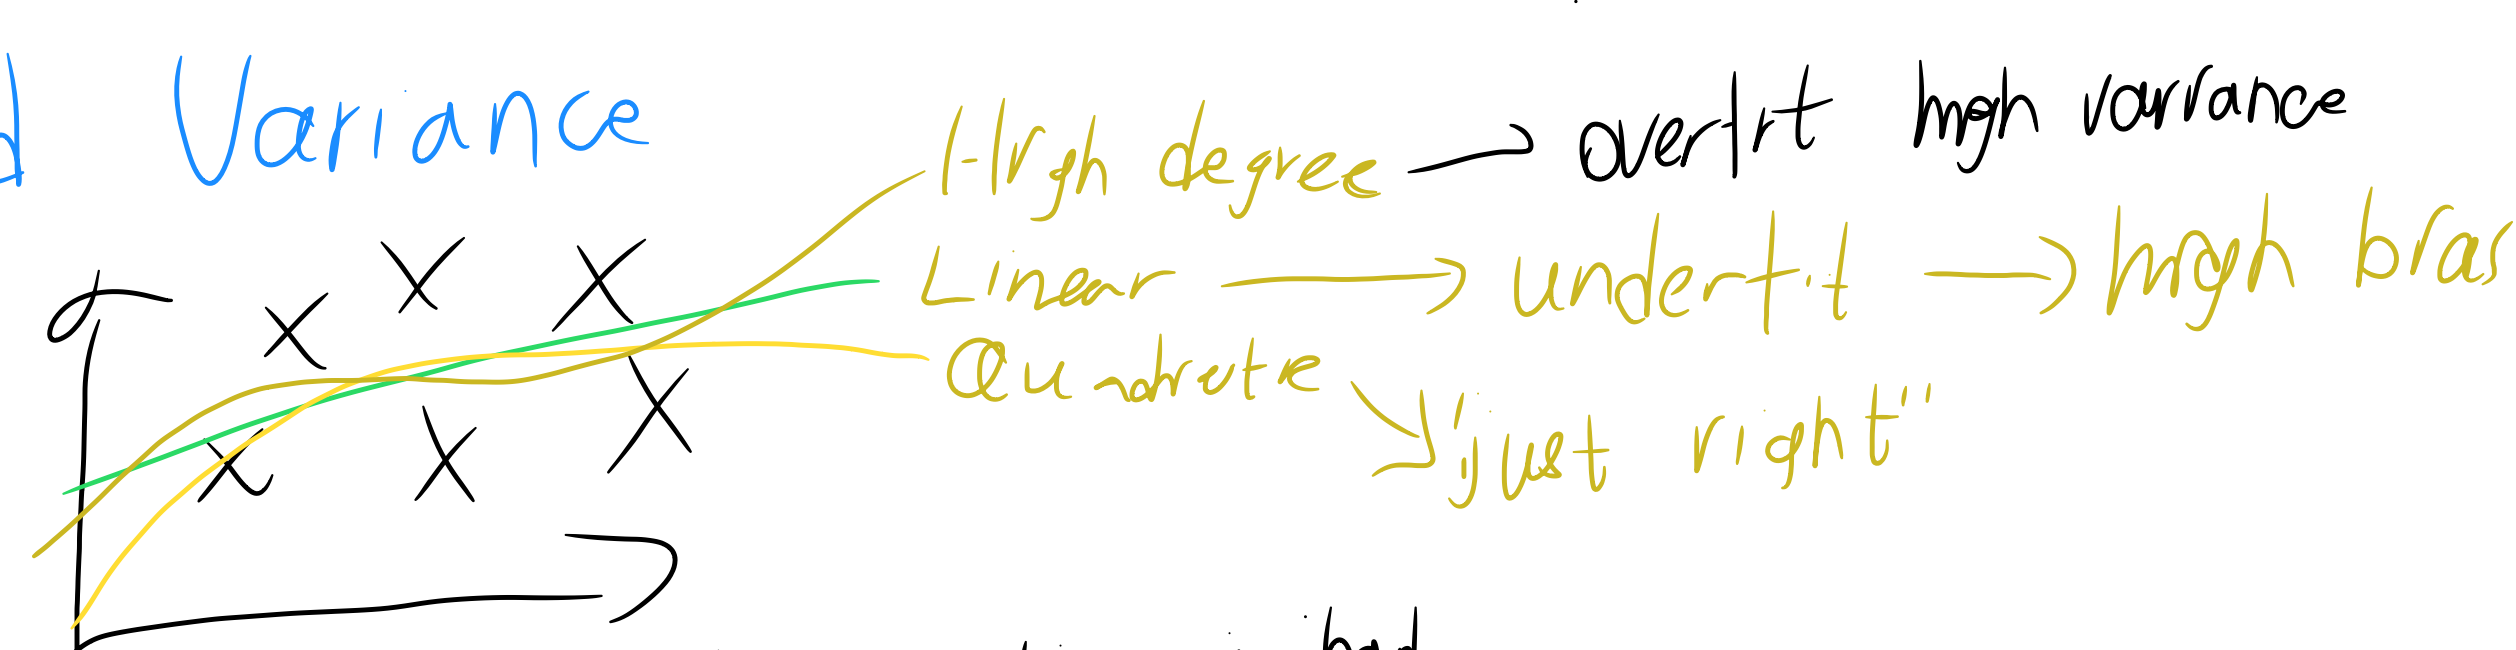 Variance
High degree → overfit high variance
Linear → underfit → high bias
Quadratic
"just right"